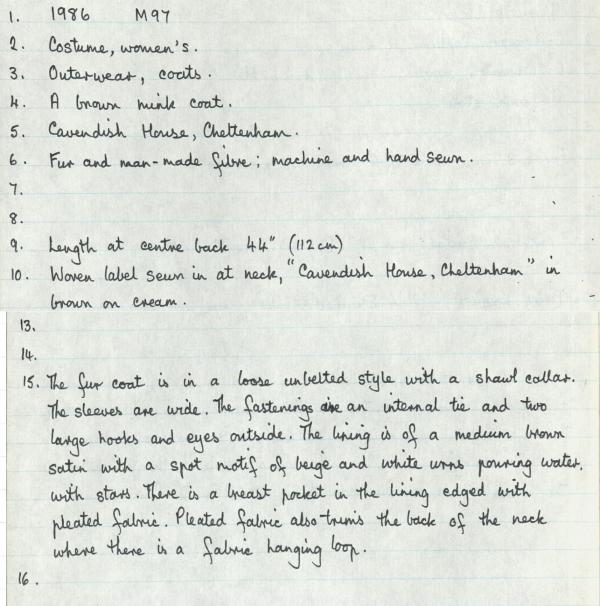 1. 1986 M97
2. Costume, women's.
3. Outerwear, coats.
4. A brown mink coat.
5. Cavendish House, Cheltenham.
6. Fur and man-made fibre; machine and hand sewn.
7.
8.
9. Length at centre back 44" (112 cm)
10. Woven label sewn in at neck, "Cavendish House, Cheltenham" in
brown on cream.
13.
14.
15. The fur coat is in a loose unbelted style with a shawl collar.
The sleeves are wide. The fastenings are an internal tie and two
large hooks and eyes outside. The lining is of a medium brown
satin with a spot motif of beige and white urns pouring water,
with stars. There is a breast pocket in the lining edged with
pleated fabric. Pleated fabric also trims the back of the neck
where there is a fabric hanging loop.
16.